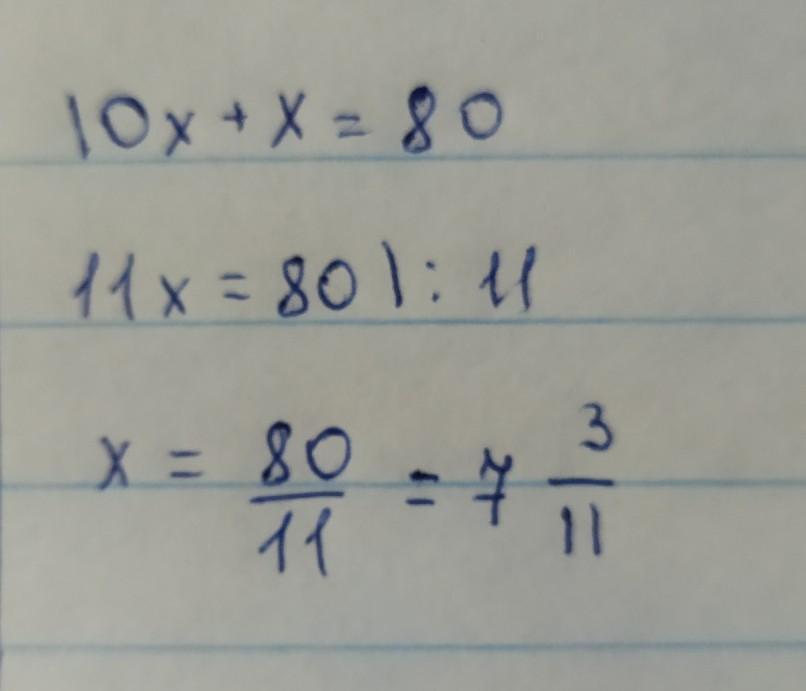 10x + x = 80
11x = 80 \: 11
x = 80/11 = 7 3/11